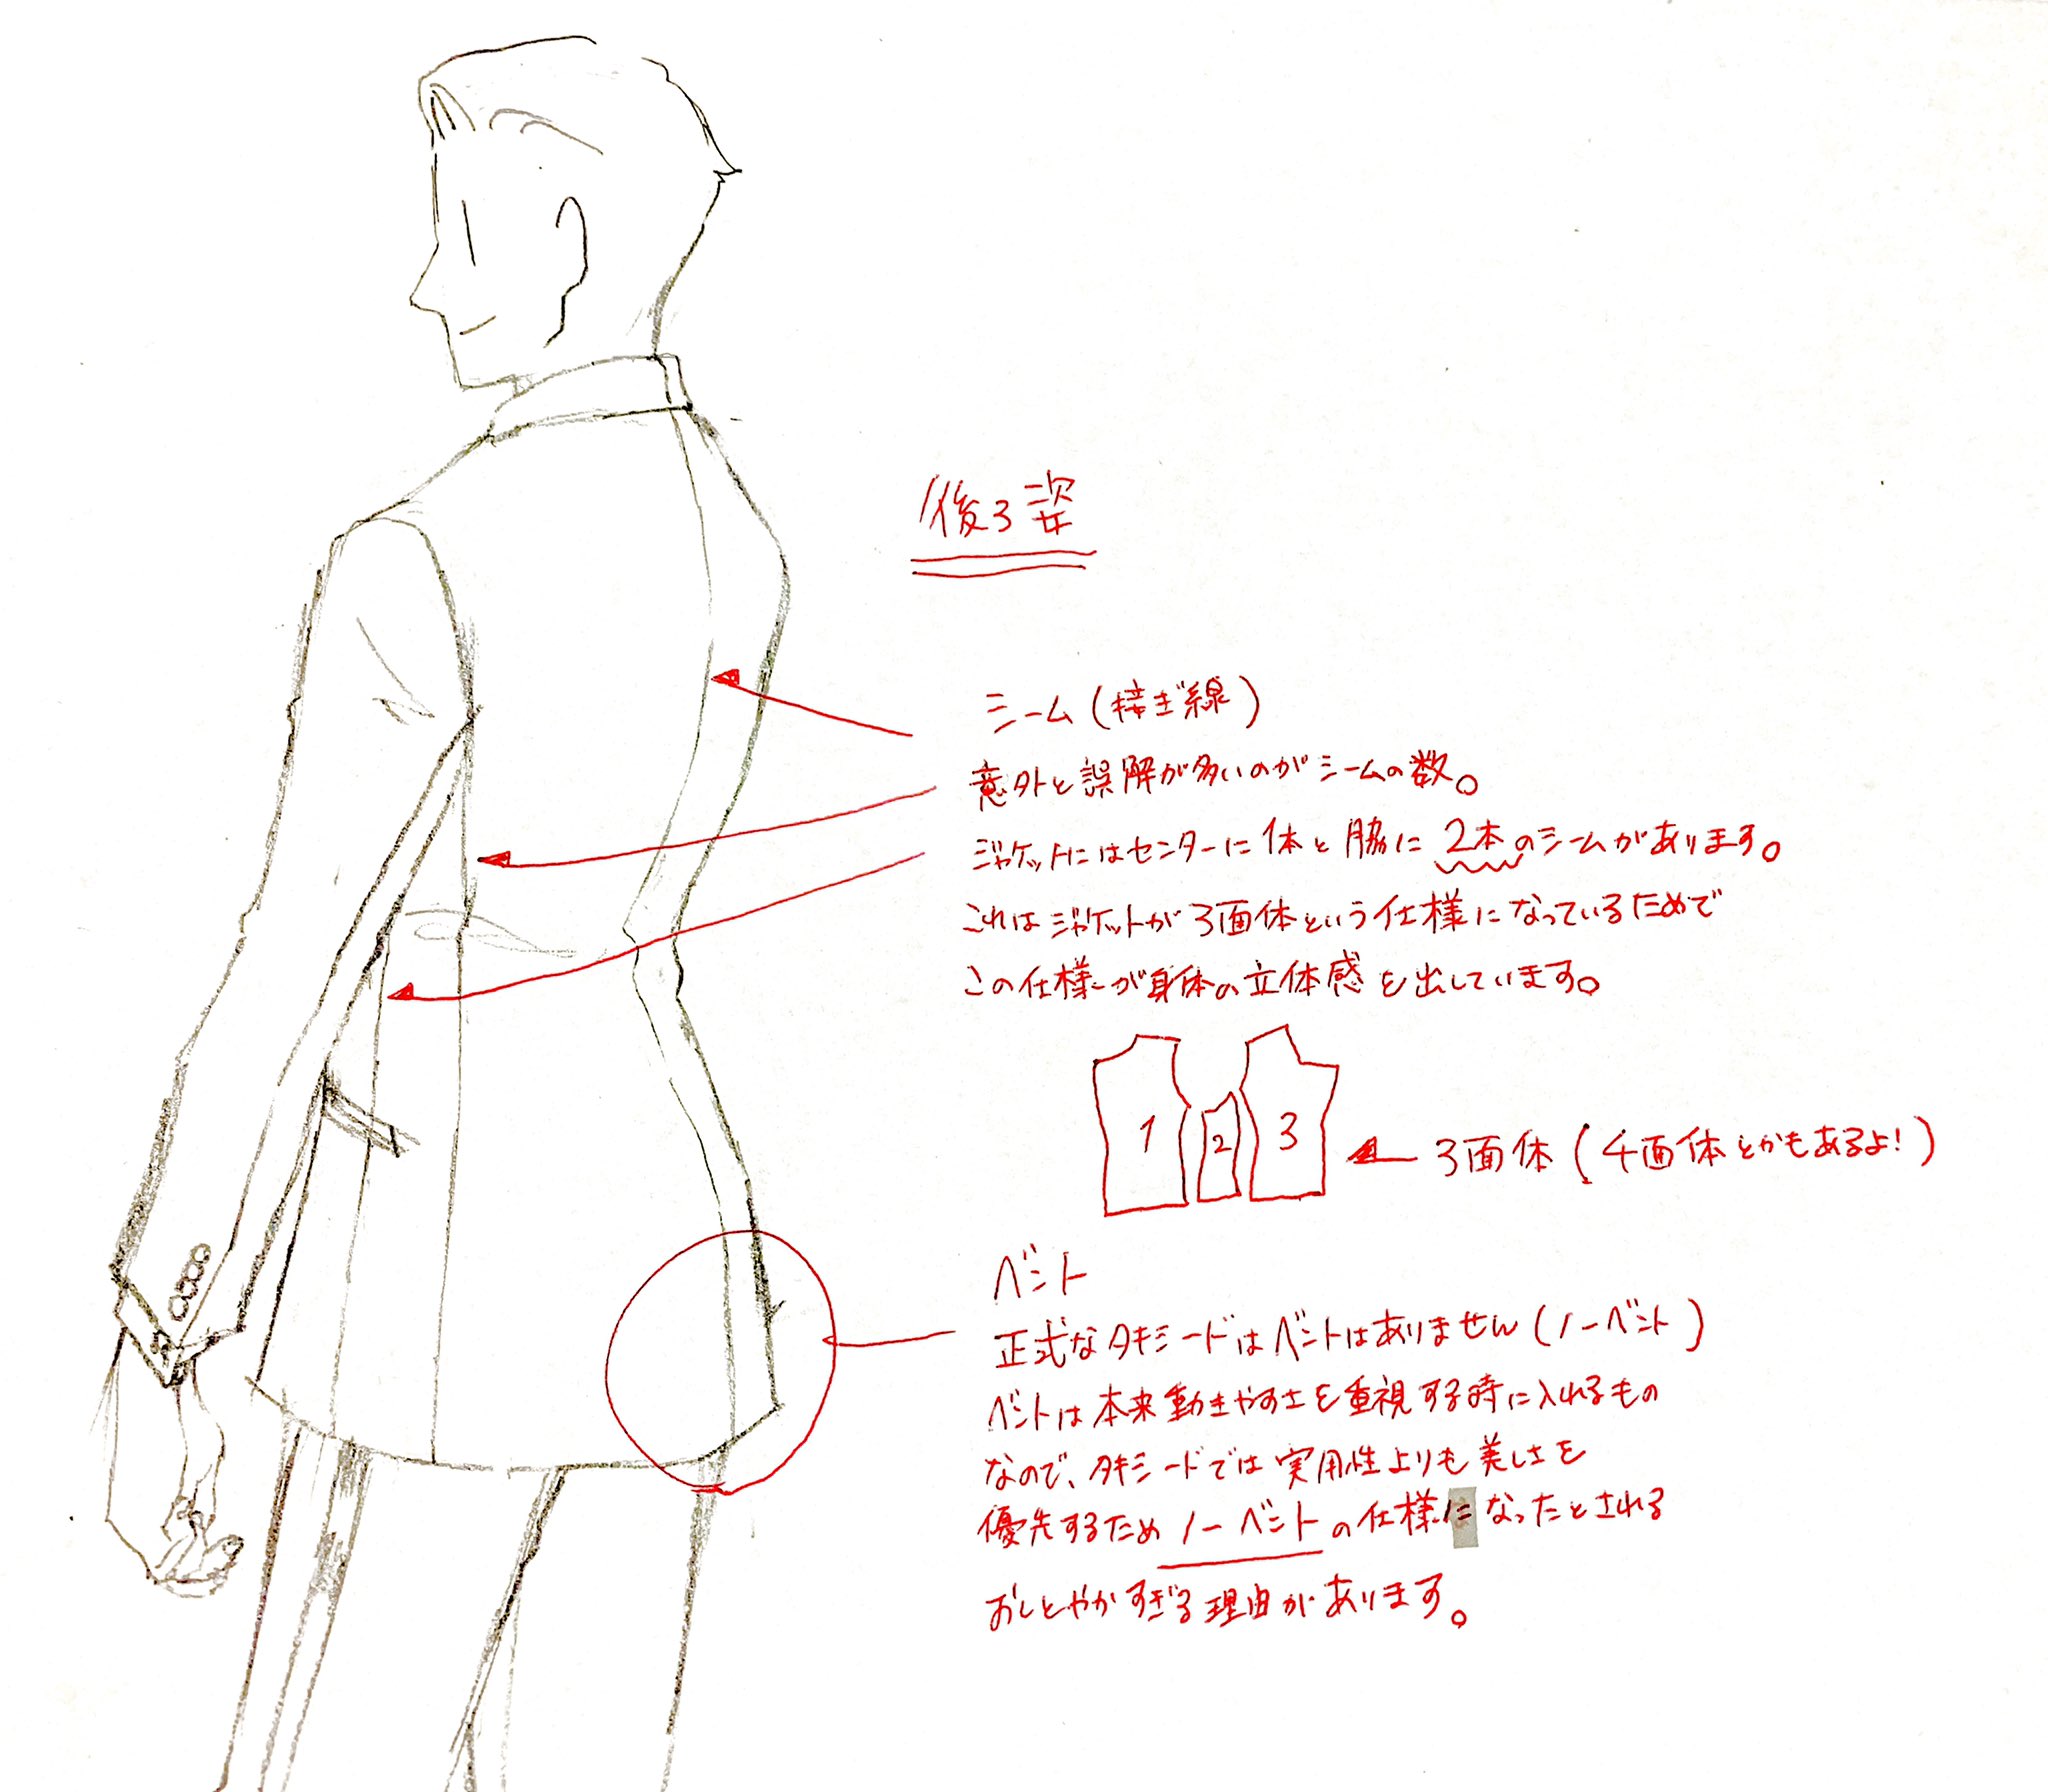 後ろ姿
シーム(接ぎ線)
意外と誤解が多いのがシームの数。
ジャケットにはセンターに1本と脇に2本のシームがあります。
これはジャケットが3面体という仕様になっているためで
この仕様が身体の立体感を出しています。
1 2 3
3面体(4面体とかもあるよ!)
ベント
正式なタキシードはベントはありません(ノーベント)
ベントは本来動きやすさを重視する時に入れるもの
なので、タキシードでは実用性よりも美しさを
優先するためノーベントの仕様になったとされる
おしとやかすぎる理由があります。